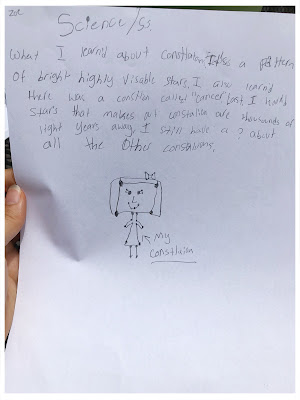 zoe
Science/ss.
What I learnd about constlation. It is a pattern
Of bright highly visable stars. I also learnd
there was a constlion called "cancer" last I learnd
stars that makes all constlation are thousands of
light years away. I still have a ? about
all the Other constations.
My
constlaion